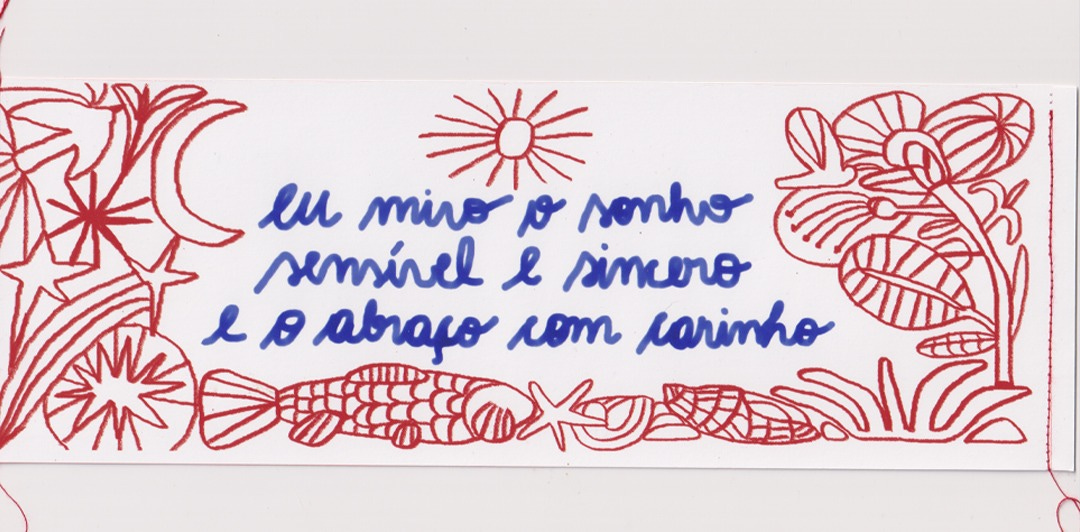 eu miro o sonho
sensível e sincero
e o abraço com carinho